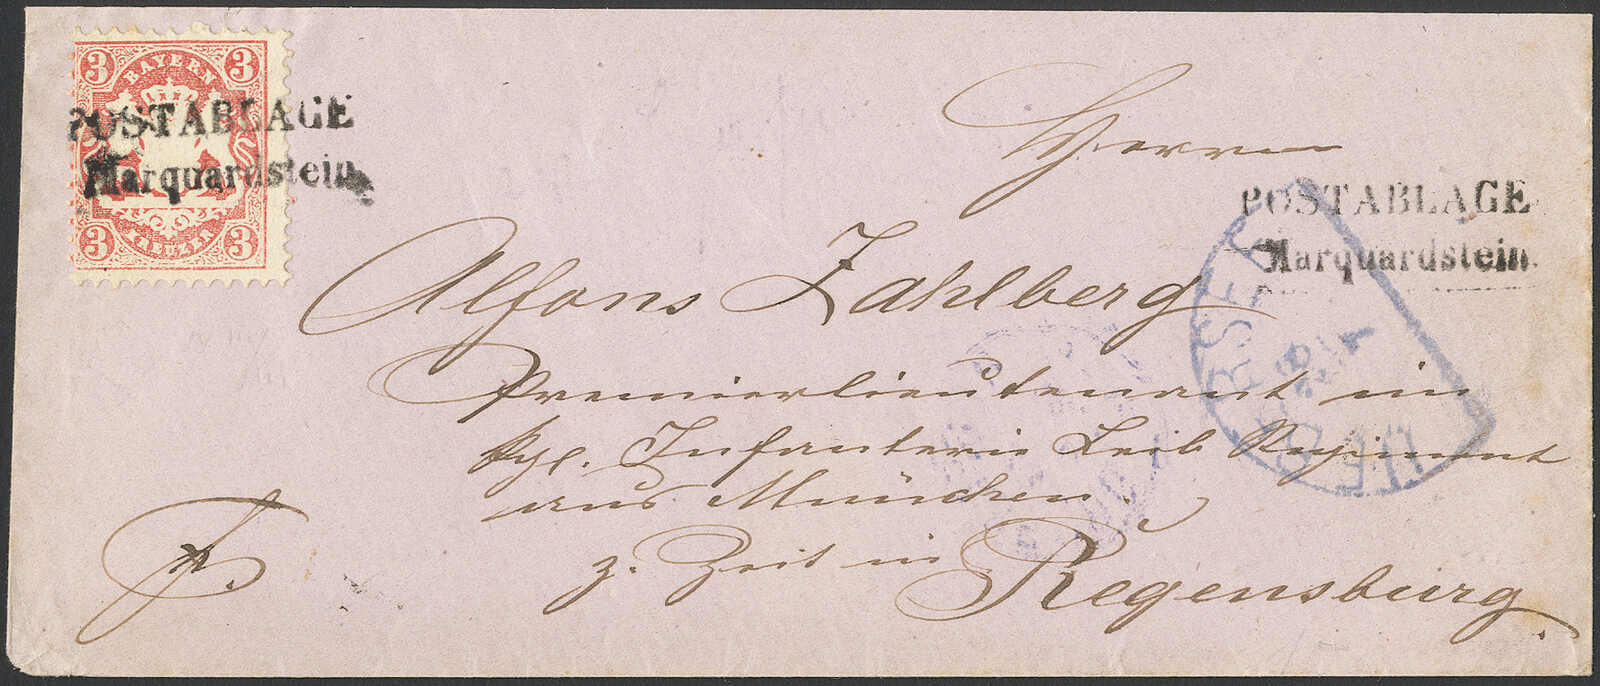 3 BAYERN 3
POSTABLAGE
Marquardstein
3 KREUZER 3
Herrn
POSTABLAGE
Marquardstein.
Alfons Zahlberg
Premierlieutenant im
kgl. Infanterie Leib Regiment
aus München.
z. Zeit in
Regensburg.